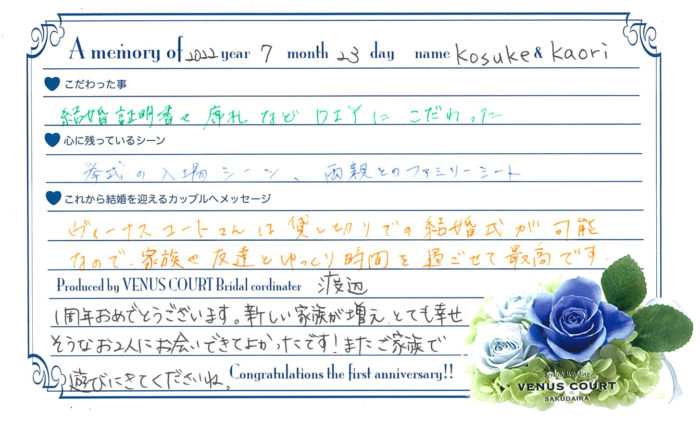 A memory of 2022 year 7 month 23 day name Kosuke & Kaori
こだわった事
結婚証明書や席札などDIYにこだわった
心に残っているシーン
挙式の入場シーン、両親とのファミリーミート
これから結婚を迎えるカップルへメッセージ
ヴィーナスコートさんは貸し切りでの結婚式が可能
なので、家族や友達とゆっくり時間を過ごせて最高です。
Produced by VENUS COURT Bridal cordinater 渡辺
1周年おめでとうございます。新しい家族が増え、とても幸せ
そうなお2人にお会いできてよかったです!またご家族で
遊びにきてくださいね。
Congratulations the first anniversary!!
VENUS COURT
SAKUDAIRA